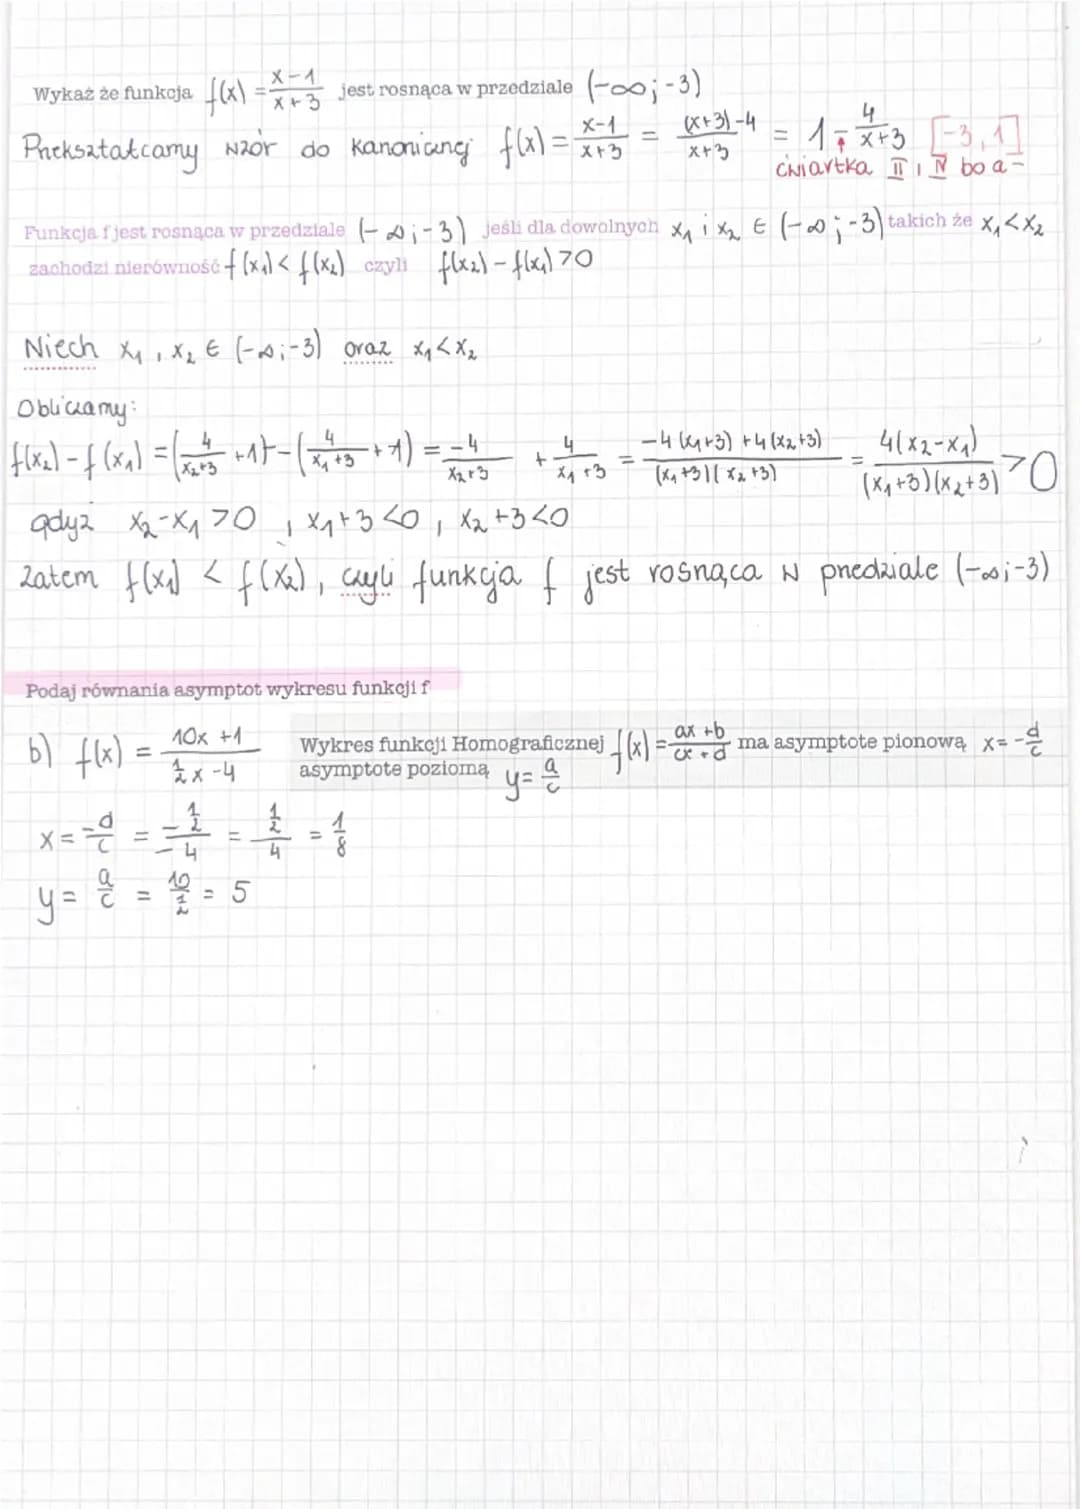 Wykaż że funkcja f(x) = x-1 / x+3 jest rosnąca w przedziale (-∞;-3)
Przekształcamy wzór do kanonicznej f(x) = x-1 / x+3 = (x+3)-4 / x+3 = 1 - 4 / x+3 [-3,1]
ćwiartka II i IV bo a -
Funkcja f jest rosnąca w przedziale (-∞;-3) jeśli dla dowolnych x₁ i x₂ ∈ (-∞;-3) takich że x₁<x₂
zachodzi nierówność f(x₁) < f(x₂) czyli f(x₂) - f(x₁) >0
Niech x₁, x₂ ∈ (-∞;-3) oraz x₁<x₂
Obliczamy:
f(x₂) - f(x₁) = (4 / x₂+3 +1) - (4 / x₁+3 +1) = -4 / x₂+3 + 4 / x₁+3 = -4(x₁+3) +4(x₂+3) / (x₁+3)(x₂+3) = 4(x₂-x₁) / (x₁+3)(x₂+3) >0
gdyż x₂-x₁ >0, x₁+3<0, x₂+3<0
Zatem f(x₁) < f(x₂), czyli funkcja f jest rosnąca w przedziale (-∞;-3)
Podaj równania asymptot wykresu funkcji f
b) f(x) = 10x +1 / ½x -4
Wykres funkcji Homograficznej f(x) = ax +b / cx +d ma asymptote pionową x= -d/c
asymptote poziomą y= a/c
x = -d/c = -½ / -4 = ½ / 4 = 1/8
y = a/c = 10 / ½ = 5